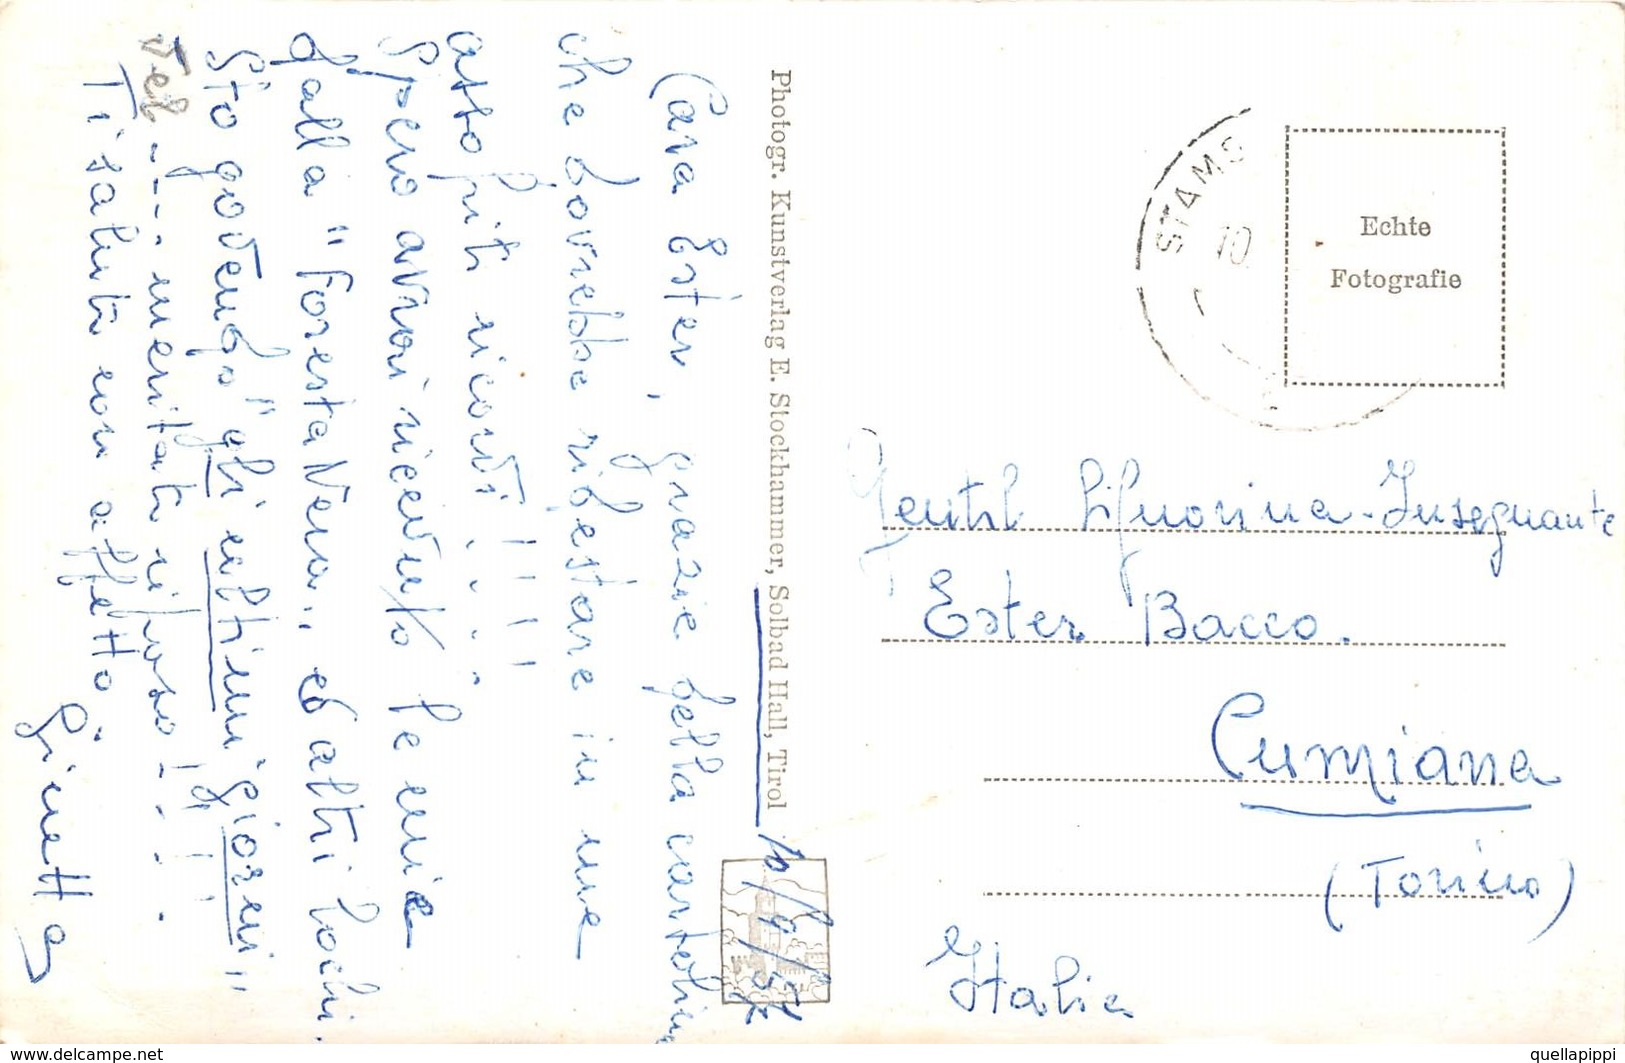 Cara Ester, grazie della cartolina
che dovrebbe ridestare in me
assopiti ricordi!....!!!!
Spero avrai ricevuto le mie
dalla "Foresta Nera,, ed altri pochi.
Sto godendo "gli ultimi giorni,,
del .... meritato riposo!....!!!
Ti saluto con affetto.
Ginetta
Photogr. Kunstverlag E. Stockhammer, Solbad Hall, Tirol
STAMS
10.
Echte
Fotografie
Gentil Signorina-Insegnante
Ester Bacco.
Cumiana
(Torino)
Italia
www.delcampe.net
quellapippi